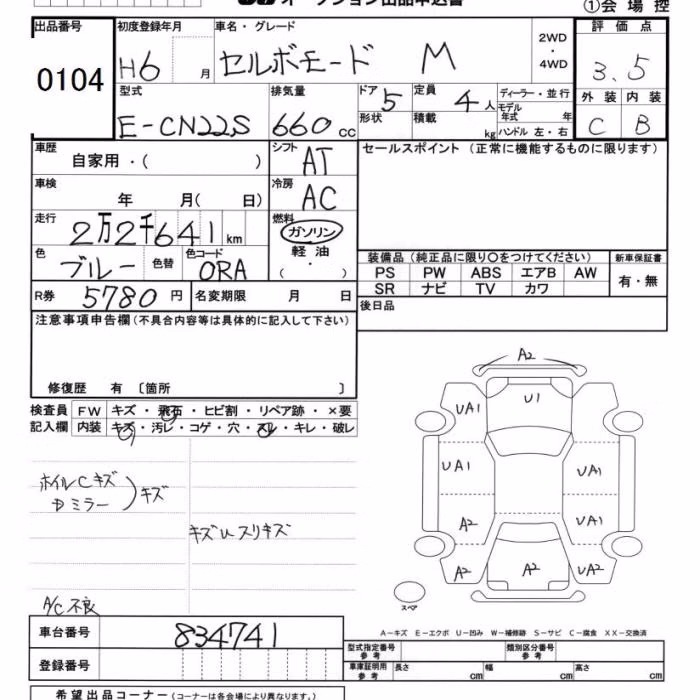 オークション出品申込書
①会場控
出品番号 初度登録年月 車名・グレード 2WD ・ 4WD 評価点
0104 H6 月 セルボモード M 3.5
型式 排気量 ドア 5 定員 4人 ディーラー・並行 外装 内装
E-CN22S 660cc 形状 積載 kg モデル年式 年 ハンドル 左・右 C B
車歴 自家用・( ) シフト AT セールスポイント (正常に機能するものに限ります)
車検 年 月( 日) 冷房 AC
走行 2万2千641km 燃料 ガソリン 軽油 ・ ( )
色 ブルー 色替 色コード 0RA
装備品 (純正品に限り○をつけてください) 新車保証書
PS PW ABS エアB AW 有・無
SR ナビ TV カワ
R券 5780円 名変期限 月 日 後日品
注意事項申告欄 (不具合内容等は具体的に記入して下さい)
修復歴 有 〔箇所 〕
検査員 FW キズ・飛石・ヒビ割・リペア跡・×要
記入欄 内装 キズ・汚レ・コゲ・穴・スレ・キレ・破レ
ホイルCキズ
ミラー キズ
キズUスリキズ
A/C不良
A2
UA1 U1
UA1 UA1
A2 UA1
A2 A2 UA2
スペア
A-キズ E-エクボ U-凹み W-補修跡 S-サビ C-腐食 XX-交換済
車台番号 834741
型式指定番号 参考 類別区分番号 参考
登録番号 車庫証明用 参考 長さ cm 幅 cm 高さ cm
希望出品コーナー (コーナーは各会場により異なります。)